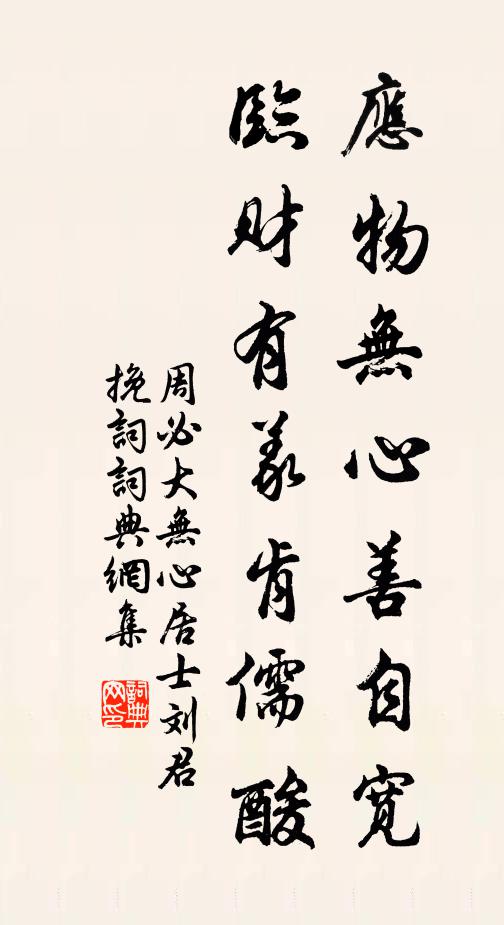 應物無心善自寬
臨财有義肯儒酸
周必大無心居士刘君
挽詞詞典網集
詞典网印